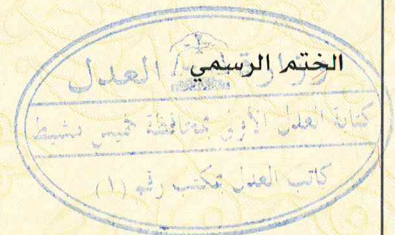 الختم الرسمي
وزارة العدل
كتابة العدل الأولى بمحافظة خميس مشيط
كاتب العدل بمكتب رقم (١)